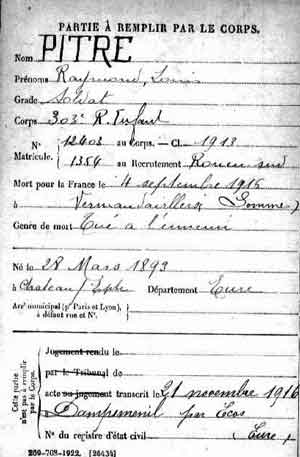 PARTIE À REMPLIR PAR LE CORPS.
Nom PITRE
Prénoms Raymond, Louis
Grade Soldat
Corps 303e R. Infant
N° 12403 au Corps. — Cl. 1913
Matricule. 1384 au Recrutement Rouen sud
Mort pour la France le 4 septembre 1916
à (Somme)
Genre de mort Tué à l'ennemi
Né le 28 Mars 1893
à Chateau / Epte Département Eure
Arrt municipal (pr Paris et Lyon), à défaut rue et N°.
Cette partie n'est pas à remplir par le Corps.
Jugement rendu le
par le Tribunal de
acte ou jugement transcrit le 21 novembre 1916
à Dampsmenil par Ecos
N° du registre d'état civil (Eure)
269-708-1922. [26434]